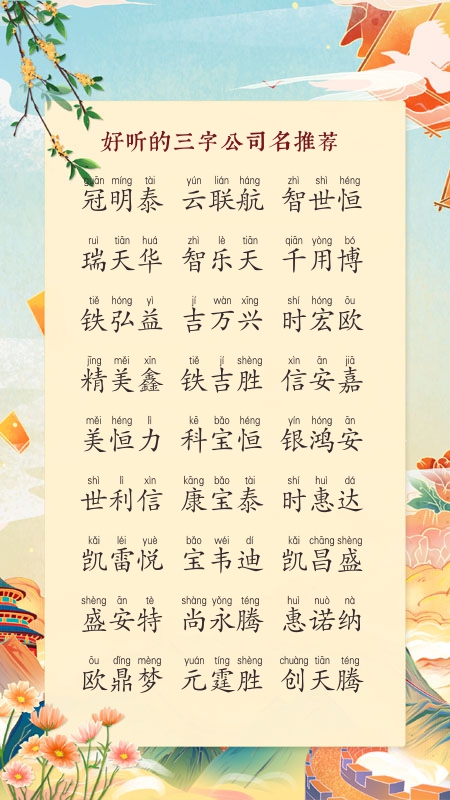 好听的三字公司名推荐
guān míng tài yún lián háng zhì shì héng
冠明泰 云联航 智世恒
ruì tiān huá zhì lè tiān qiān yòng bó
瑞天华 智乐天 千用博
tiě hóng yì jí wàn xīng shí hóng ōu
铁弘益 吉万兴 时宏欧
jīng měi xīn tiě jí shèng xìn ān jiā
精美鑫 铁吉胜 信安嘉
měi héng lì kē bǎo héng yín hóng ān
美恒力 科宝恒 银鸿安
shì lì xìn kāng bǎo tài shí huì dá
世利信 康宝泰 时惠达
kǎi léi yuè bǎo wéi dí kǎi chāng shèng
凯雷悦 宝韦迪 凯昌盛
shèng ān tè shàng yǒng téng huì nuò nà
盛安特 尚永腾 惠诺纳
ōu dǐng mèng yuán tíng shèng chuàng tiān téng
欧鼎梦 元霆胜 创天腾